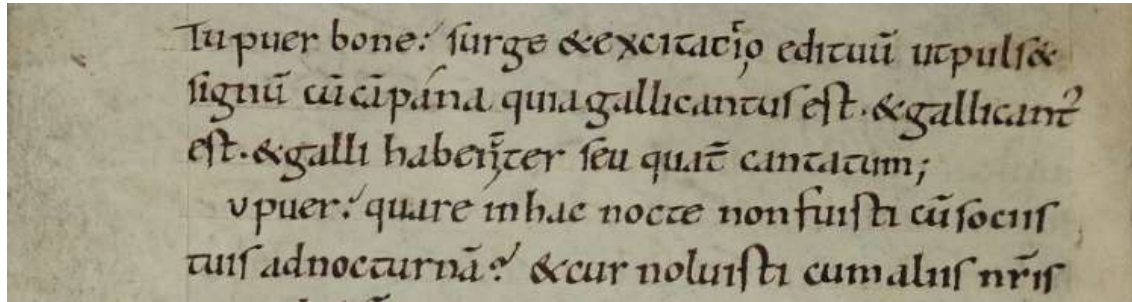 Tu puer bone: surge &excitatio edituū utpuls&
signū cū cipana quia gallicantus est. &gallicant᾿
est. &galli haben ter seu quat̄ cantatum;
u puer: quare in hac nocte non fuisti cū sociis
tuis ad nocturnā? &cur noluisti cum aliis nr̄is